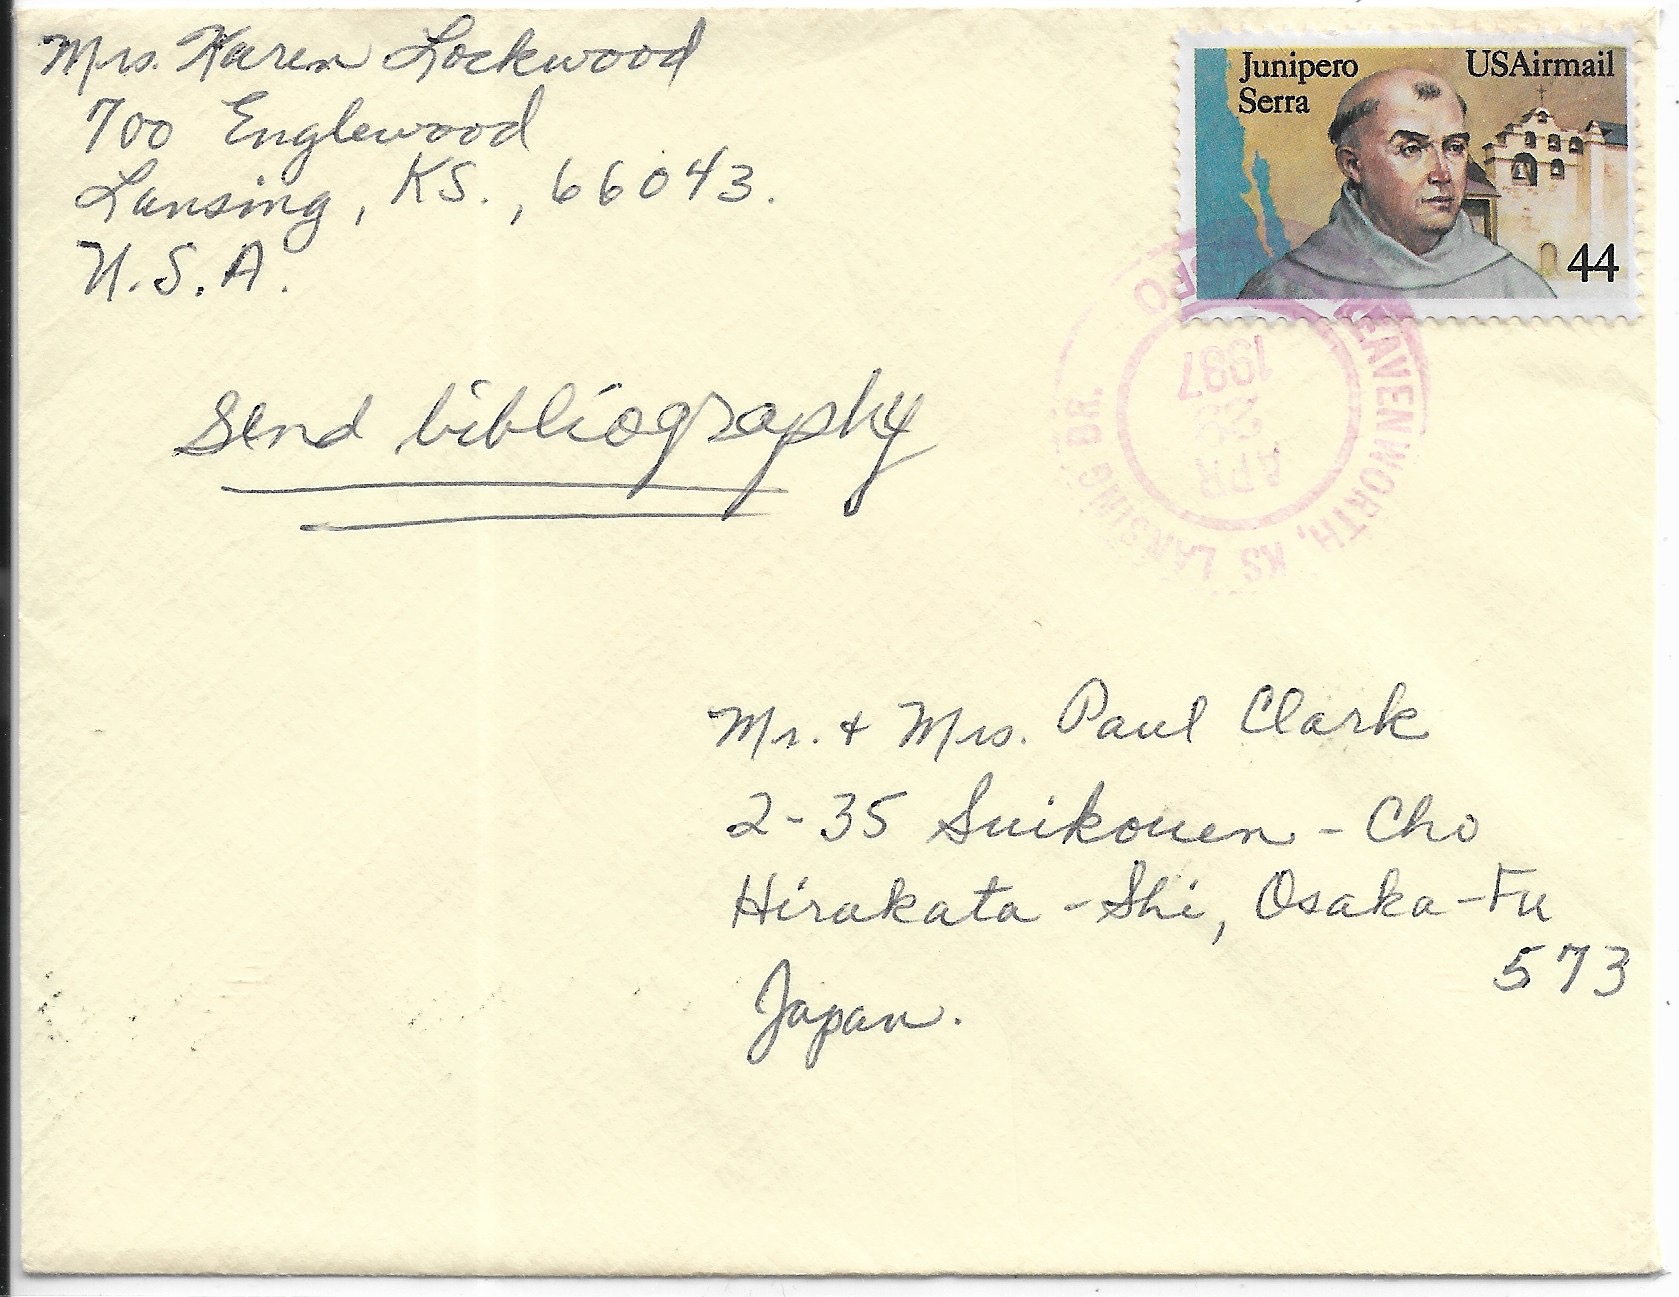 Mrs. Karen Lockwood
700 Englewood
Lansing, KS., 66043.
U.S.A.
Junipero Serra
USAirmail
44
LEAVENWORTH, KS LANSING BR.
APR
28
1987
Send bibliography
Mr. + Mrs. Paul Clark
2-35 Suikouen-Cho
Hirakata-Shi, Osaka-Fu
573
Japan.